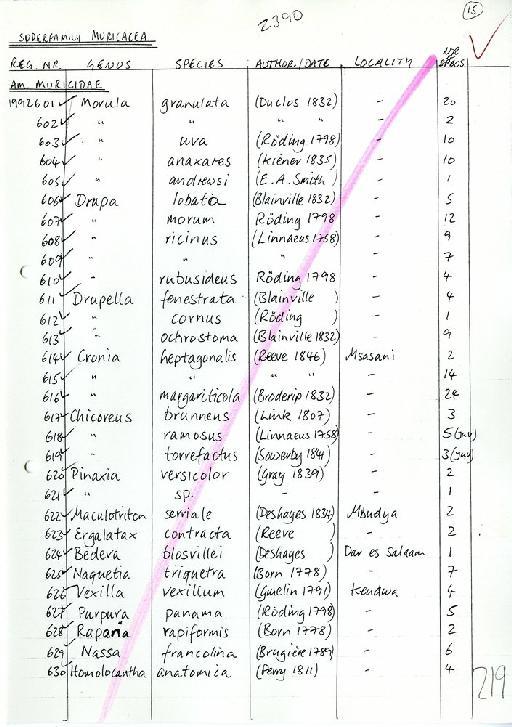 2390
15
SUPERFAMILY MURICACEA
REG. NR. GENUS SPECIES AUTHOR/DATE LOCALITY SPECS
FAM. MURICIDAE
1992601 Morula granulata (Duclos 1832) - 20
602 " " " - 2
603 " uva (Röding 1798) - 10
604 " anaxares (Kiener 1835) - 10
605 " andrewsi (E.A. Smith) - 1
606 Drupa lobata (Blainville 1832) - 5
607 " morum Röding 1798 - 12
608 " ricinus (Linnaeus 1758) - 9
609 " " " - 7
610 " rubusideus Röding 1798 - 4
611 Drupella fenestrata (Blainville ) - 4
612 " cornus (Röding ) - 1
613 " ochrostoma (Blainville 1832) - 9
614 Cronia heptagonalis (Reeve 1846) Msasani 2
615 " " " " - 14
616 " margariticola (Broderip 1832) - 24
617 Chicoreus brunneus (Link 1807) - 3
618 " ramosus (Linnaeus 1758) - 5 (juv)
619 " torrefactus (Sowerby 1841) - 3 (juv)
620 Pinaxia versicolor (Gray 1839) - 2
621 " sp. - - 1
622 Maculotriton serriale (Deshayes 1834) Mbudya 2
623 Ergalatax contracta (Reeve ) - 2
624 Bedeva blosvillei (Deshayes ) Dar es Salaam 1
625 Naquetia triquetra (Born 1778) - 7
626 Vexilla vexillum (Gmelin 1791) Kendwa 4
627 Purpura panama (Röding 1798) - 5
628 Rapana rapiformis (Born 1778) - 2
629 Nassa francolina (Brugière 1789) - 6
630 Homolocantha anatomica (Perry 1811) - 4
219